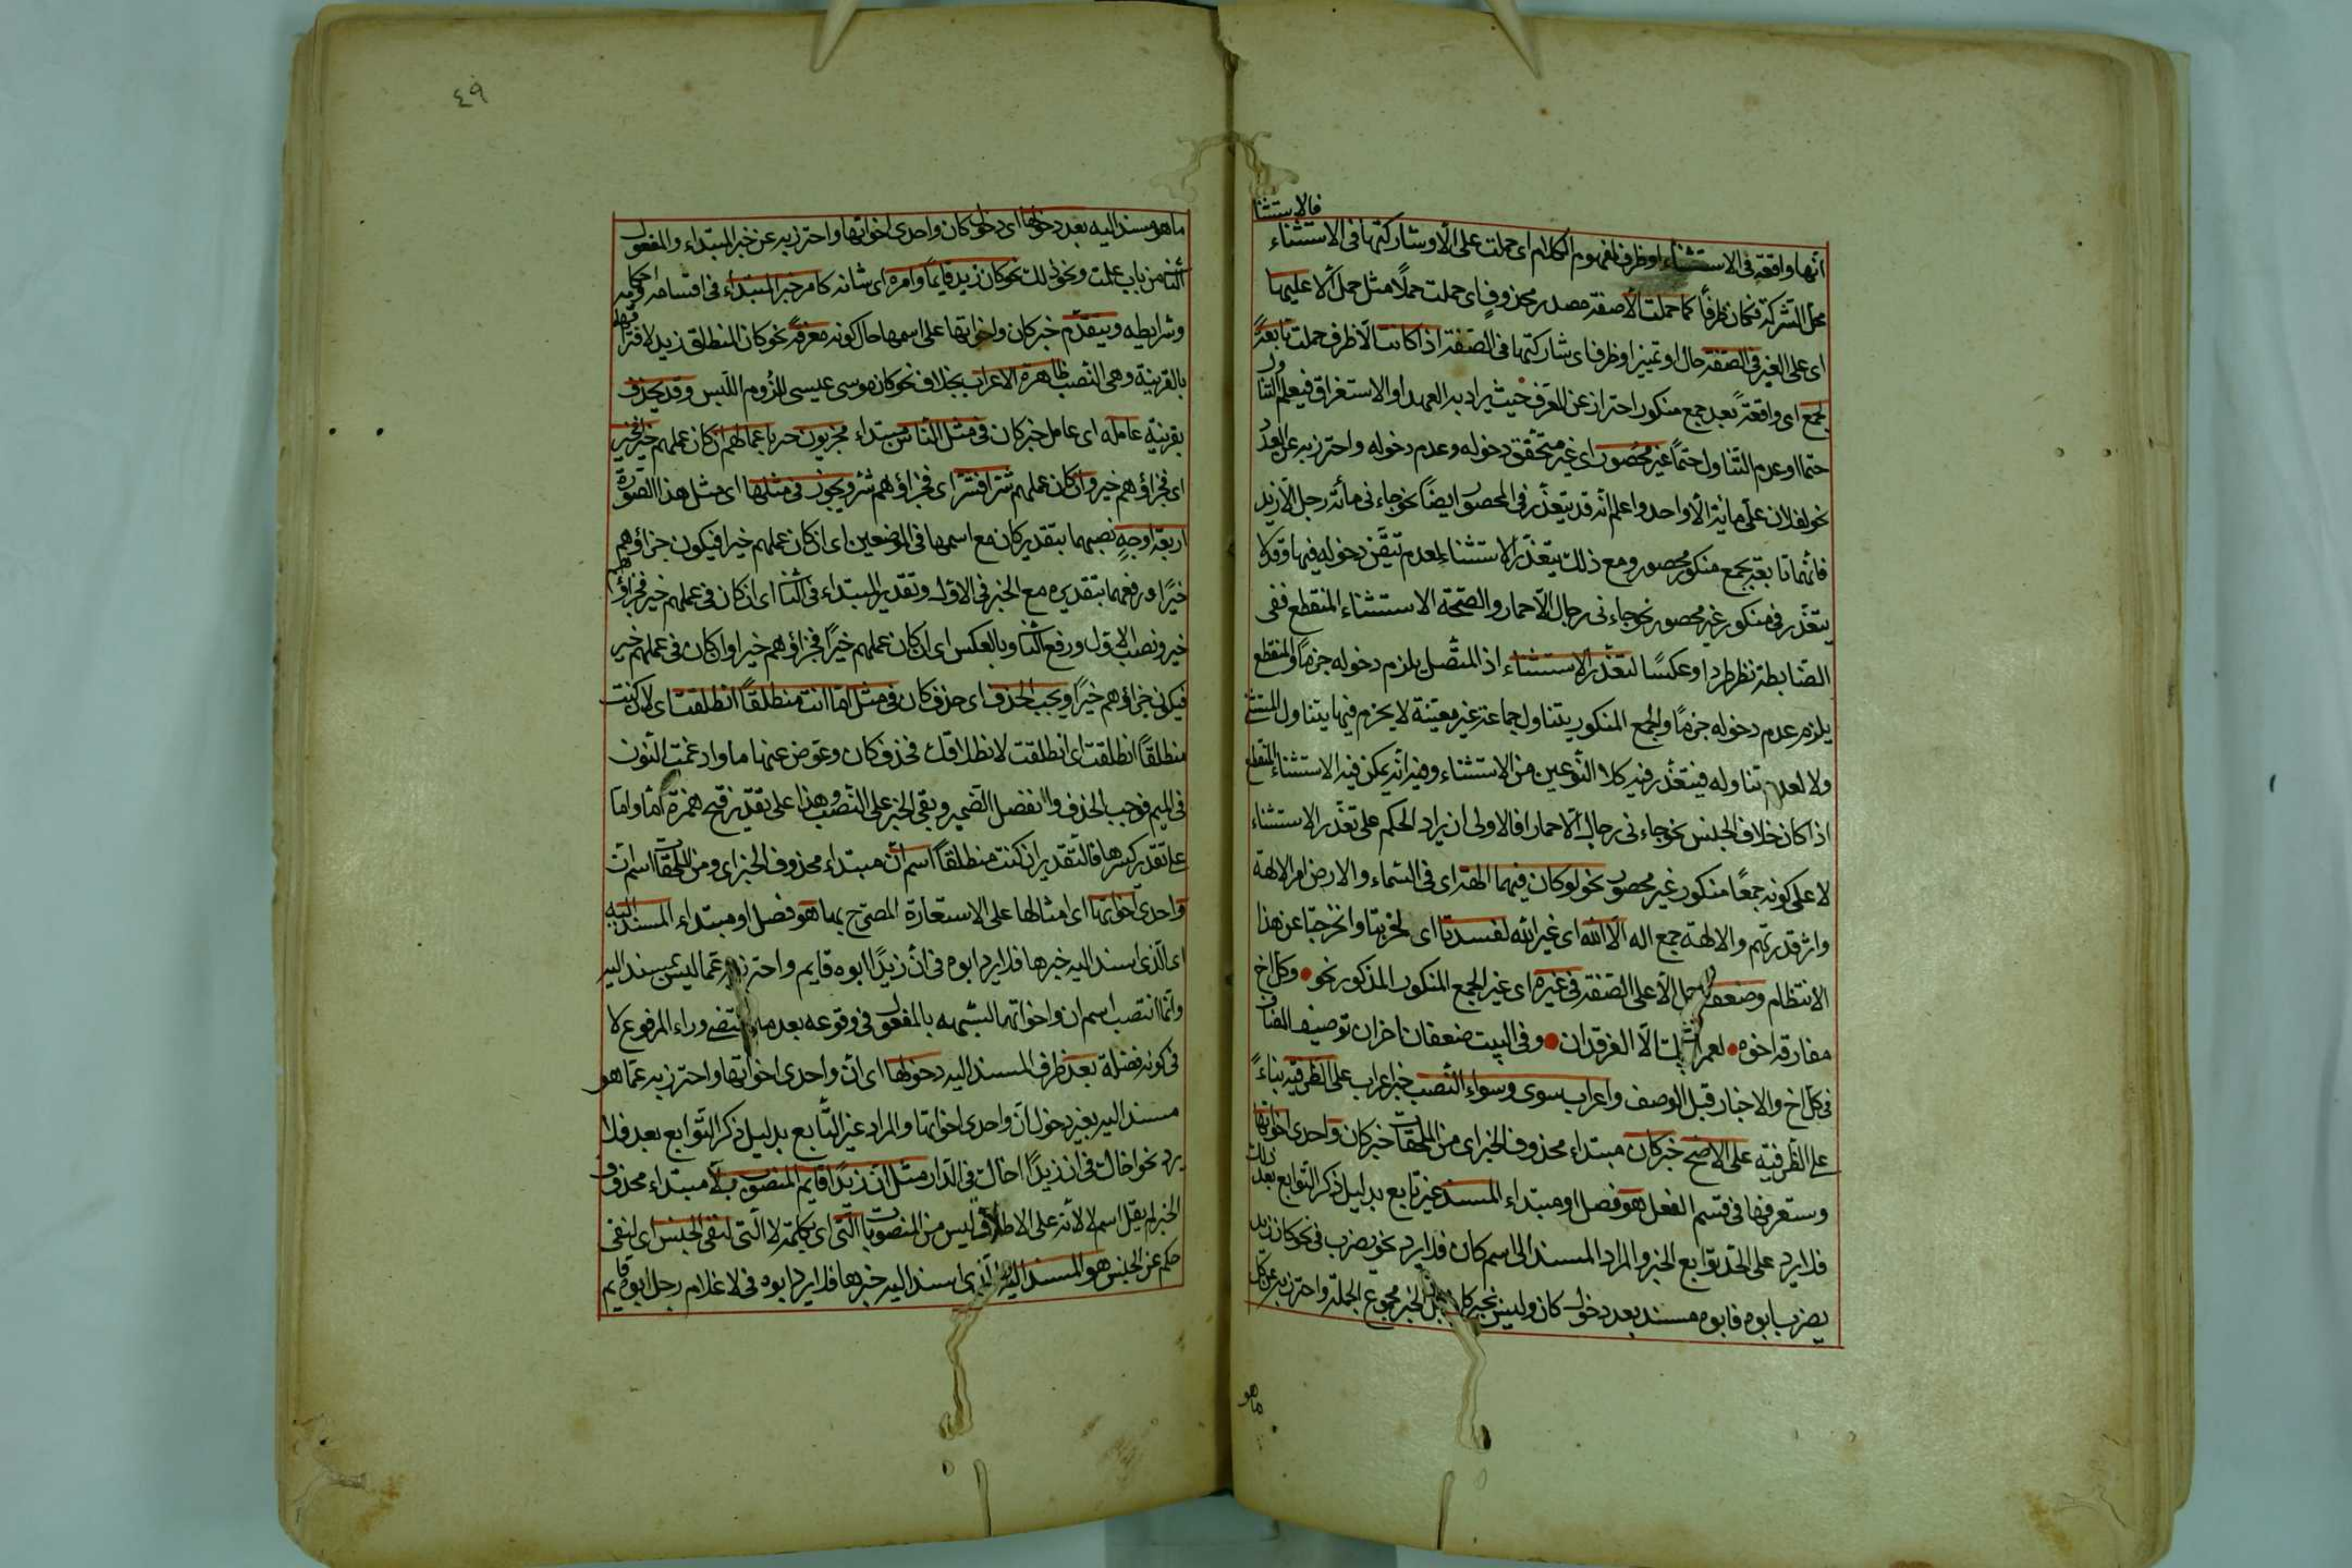 فالاستثنا
أنها واقعة في الاستثناء او ظرف لمفهوم الكلام اى حملت على الّا وشاركتها في الاستثناء
محل الشركة فكان ظرفاً كما حملت الّا صفة مصدر محذوفٍ اى حملت حملاً مثل حمل ألّا عليها
اى على الغير في الصفة حال او تمييز او ظرف اى شاركتها في الصفة اذا كانت الّا ظرف حملت تابعةً
لجمع اى واقعةً بعد جمع منكور احتراز عن المعرف حيث يراد به العهد او الاستغراق فيعلم التناول
حتما او عدم التناول حتماً غير محصور اى غير متحقق دخوله وعدم دخوله واحترز به عن العدد
نحو لفلان علىّ مائة الّا واحد واعلم انّه قد يتعذّر في المحصور ايضاً نحو جاءنى مأئة رجل الّا زيد
فانّها تابعة بجمع منكور محصور ومع ذلك يتعذّر الاستثناء لعدم تيقّن دخوله فيها وقد لا
يتعذّر في منكور غير محصور نحو جاءنى رجال الّا حمار والصّحّة الاستثناء المنقطع ففى
الضّابطة نظر طردا وعكسًا لتعذّر الاستثناء اذ المتّصل يلزم دخوله جزماً والمنقطع
يلزم عدم دخوله جزماً والجمع المنكور يتناول جماعة غير معيّنة لا يجزم فيها بتناول المستثنى
ولا لعدم تناوله فيتعذّر فيه كلا النّوعين من الاستثناء وفيه انّه يمكن فيه الاستثناء المنقطع
اذا كان خلاف الجنس نحو جاءنى رجال الّا حمارا فالاولى ان يراد الحكم على تعذّر الاستثناء
لا على كونه جمعًا منكور غير محصور نحو لو كان فيهما الهة اى في السّماء والارض امر الالهة
واثر قدرتهم والالهة جمع اله الّا الله اى غير الله لفسدتا اى لخربتا وانخرجتا عن هذا
الانتظام وضعف حمل الّا على الصّفة في غيره اى غير الجمع المنكور المذكور نحو وكل اخ
مفارقه اخوه لعمر ابيك الّا الفرقدان وفي البيت ضعفان اخران توصيف المضاف
في كلّ اخ والاخبار قبل الوصف واعراب سوى وسواء النّصب خبر اعراب على الظّرفيّة بناءً
على الظّرفيّة على الاصّح خبر كان مبتداء محذوف الخبر اى من الملحقات خبر كان واحدى اخواتها
وستعرفها في قسم الفعل هو فصل او مبتداء المسند غير تابع بدليل ذكر التّوابع بعد ذلك
فلا يرد على الحدّ توابع الخبر والمراد المسند الى اسم كان فلا يرد نحو يضرب في نحو كان زيد
يضرب ابوه فابوه مسند بعد دخول كان وليس بخبر كان بل الخبر مجموع الجملة واحترز به عن كل
ماهو
٤٩
ما هو مسند اليه بعد دخولها اى دخول كان واحدى اخواتها واحترز به عن خبر المبتداء والمفعول
الثانى من باب علمت ونحو ذلك نحو كان زيد قايماً وامره اى شانه كامر خبر المبتدأ في اقسامه واحكامه
وشرايطه ويتقدّم خبر كان واخواتها على اسمها حال كونه معرفةً نحو كان المنطلق زيد لافتراقهما
بالقرينة وهى النّصب ظاهرة الاعراب بخلاف نحو كان موسى عيسى للزوم اللّبس وقد يحذف
بقرينة عامله اى عامل خبر كان في مثل النّاس مبتداء مجزيون خبر باعمالهم ان كان عملهم خيرا فخير
اى فجزاؤهم خير وان كان عملهم شرّا فشرّ اى فجزاؤهم شرّ ويجوز في مثلها اى مثل هذا الصّورة
اربعة اوجهٍ نصبهما بتقدير كان مع اسمها في الموضعين اى ان كان عملهم خيرا فيكون جزاؤهم
خيرًا ورفعهما بتقديره مع الخبر في الاوّل وتقدير المبتداء في الثّانى اى ان كان في عملهم خير فجزاؤهم
خير ونصب الاول ورفع الثّانى وبالعكس اى ان كان عملهم خيرًا فجزاؤهم خير او ان كان في عملهم خير
فيكون جزاؤهم خيرًا ويجب الحذف اى حذف كان في مثل امّا انت منطلقاً انطلقت اى لان كنت
منطلقاً انطلقت اى انطلقت لانطلاقك فحذف كان وعوّض عنها ما وادغمت النّون
في الميم فوجب الحذف وانفصل الضّمير وبقى الخبر على النّصب وهذا على تقدير فتح همزة امّا وامّا
على تقدير كسرها فالتّقدير ان كنت منطلقاً اسم انّ مبتداء محذوف الخبر اى ومن الملحقات اسم انّ
واحدى اخواتها اى امثالها على الاستعارة المصرّح بها هو فصل او مبتداء المسند اليه
اى الّذى اسند اليه خبرها فلا يرد ابوه في انّ زيدًا ابوه قايم واحترز به عمّا ليس بمسند اليه
وانّما انتصب اسم ان واخواتها لشبهه بالمفعول في وقوعه بعد ما يقتضى وراء المرفوع لا
في كونه فضلة بعد ظرف المسند اليه دخولها اى انّ واحدى اخواتها واحترز به عمّا هو
مسند اليه بغير دخول انّ واحدى اخواتها والمراد غير التّابع بدليل ذكر التّوابع بعد فلا
يرد نحو اخاك في ان زيدًا اخاك في الدّار مثل انّ زيدًا قايم المنصوب بلا مبتداء محذوف
الخبر لم يقل اسم لا لانّه على الاطلاق ليس من المنصوبات الّتى اى بكلمة لا الّتى لنفى الجنس اى لنفى
حكم عن الجنس هو المسند اليه الّذى اسند اليه خبرها فلا يرد ابوه في لا غلام رجل ابوه قايم